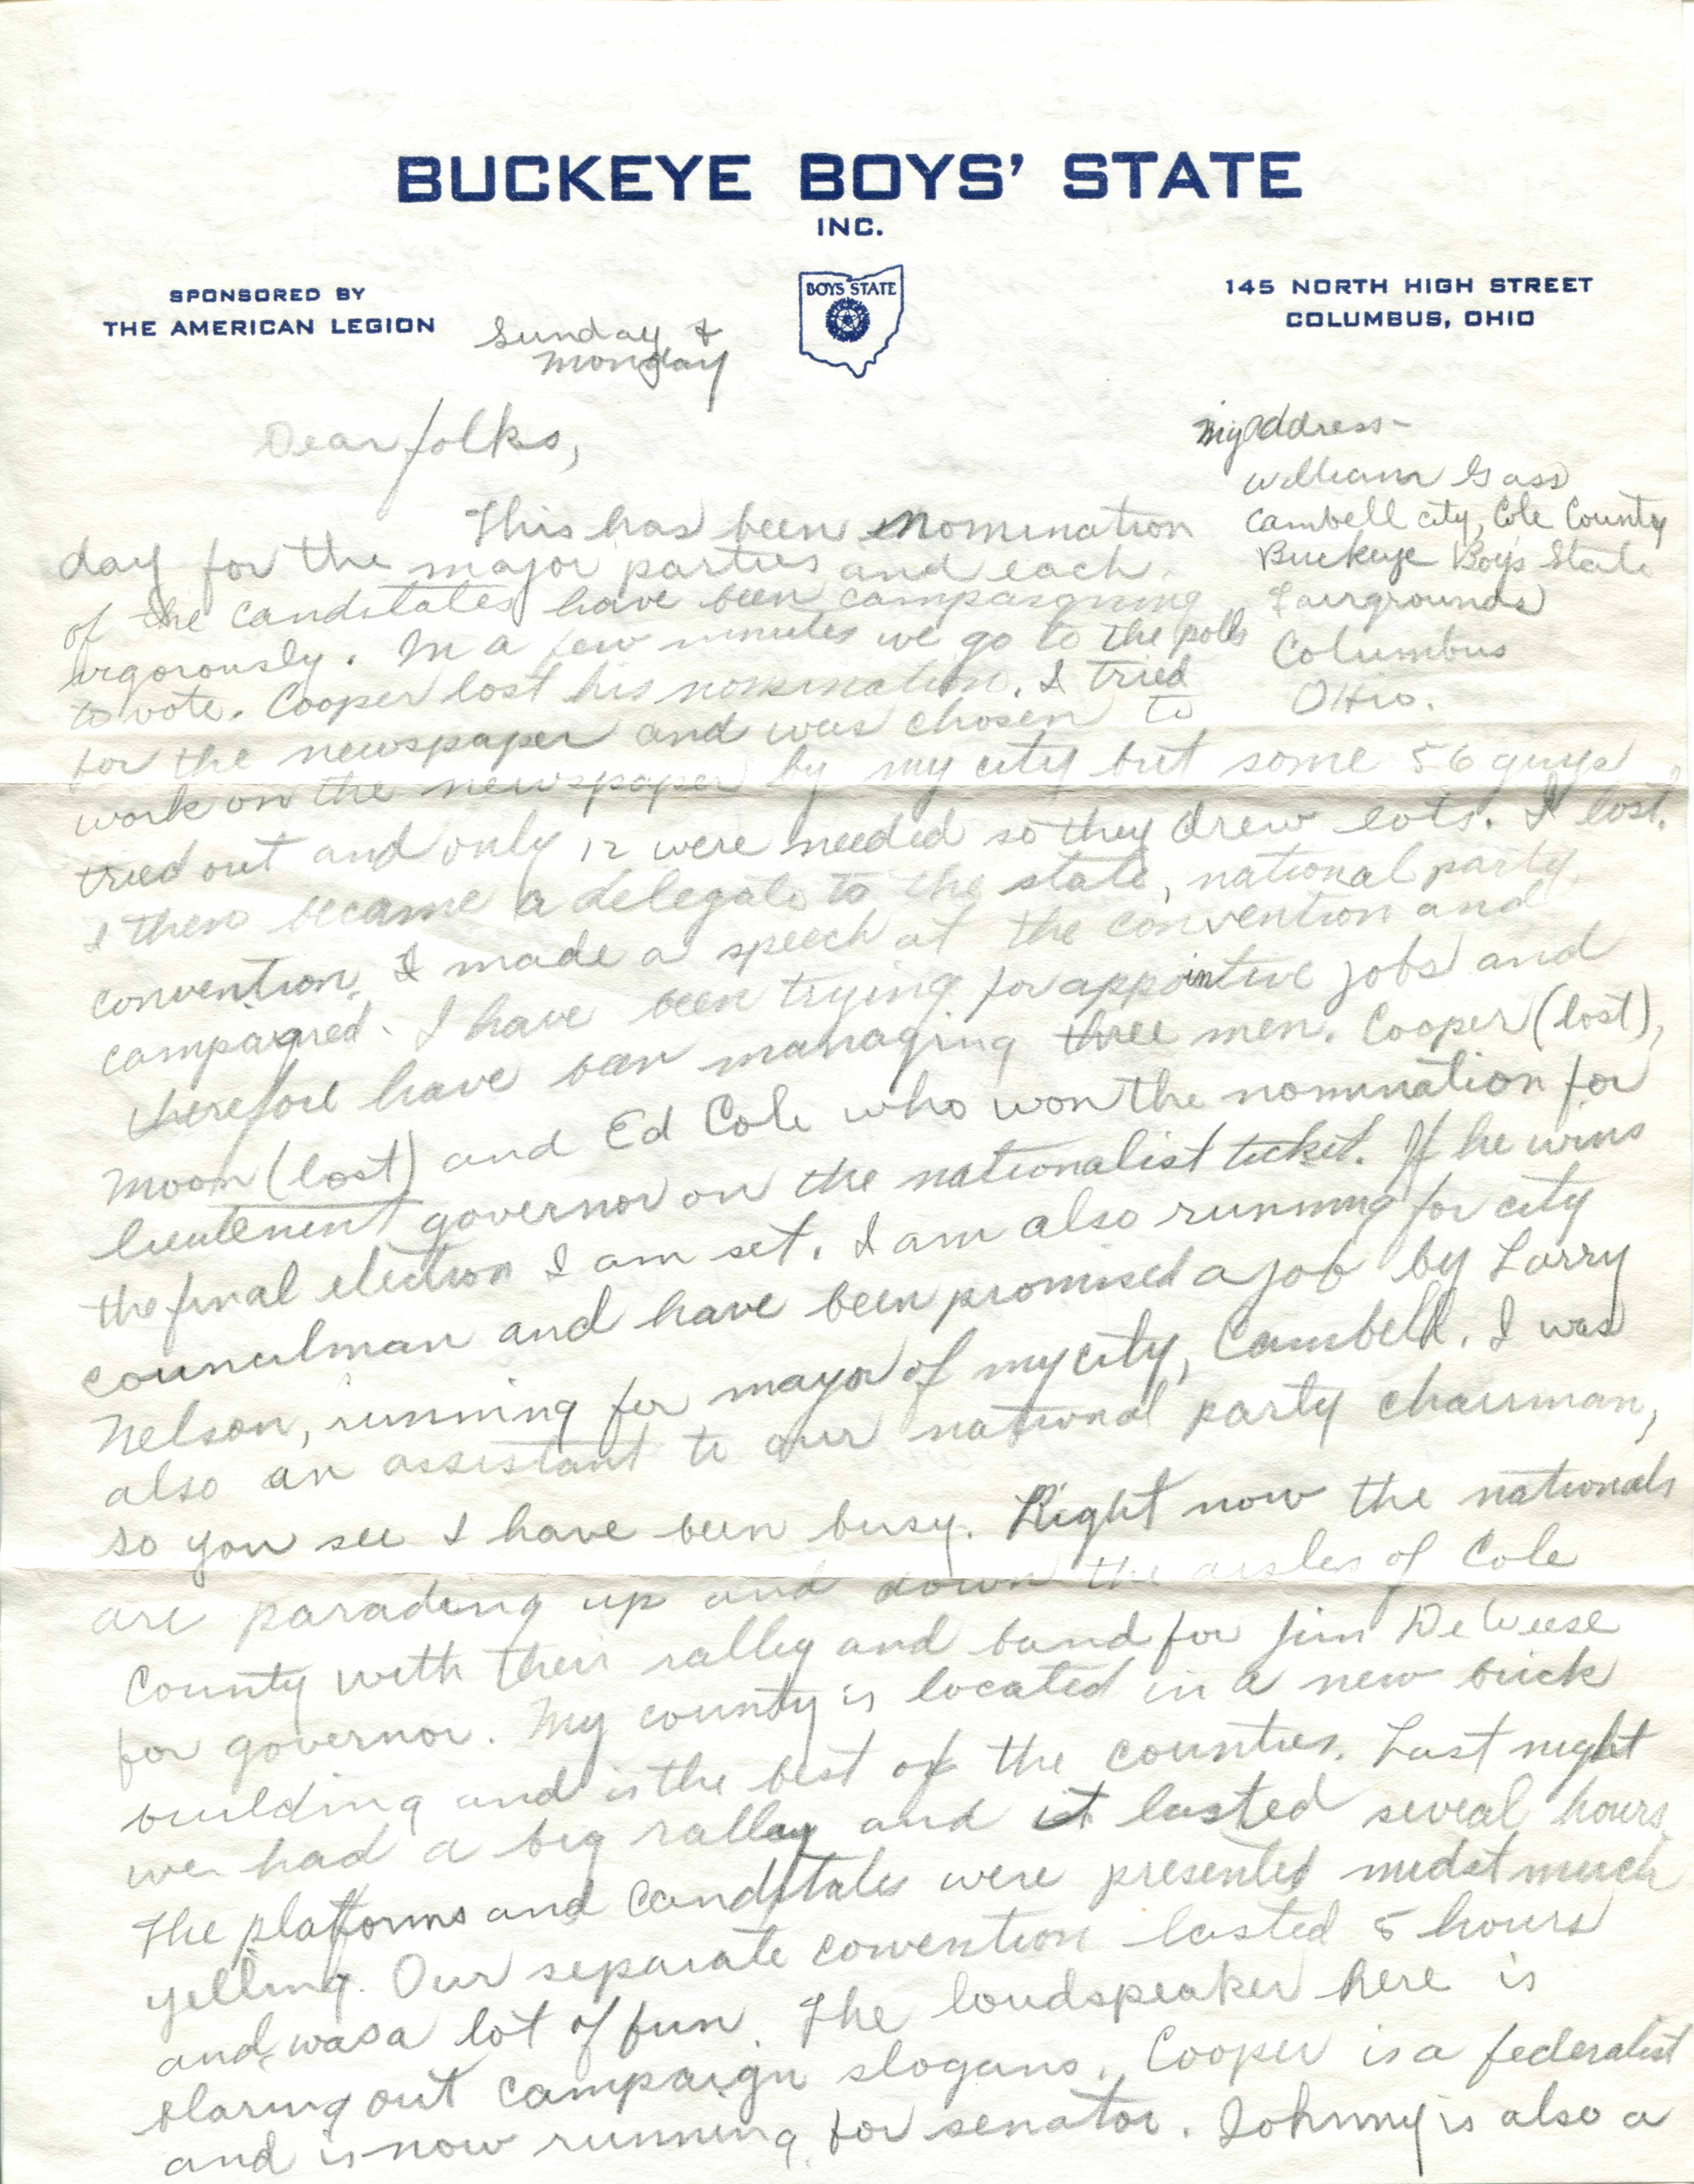 BUCKEYE BOYS' STATE
INC.
SPONSORED BY
THE AMERICAN LEGION
BOYS STATE
145 NORTH HIGH STREET
COLUMBUS, OHIO
Sunday &
Monday
My address-
William Gass
Cambell city, Cole County
Buckeye Boys State
Fairgrounds
Columbus
Ohio.
Dear folks,
This has been nomination
day for the major parties and each
of the canditates have been campaigning
vigorously. In a few minutes we go to the polls
to vote. Cooper lost his nomination. I tried
for the newspaper and was chosen to
work on the newspaper by my city but some 56 guys
tried out and only 12 were needed so they drew lots. I lost.
I then became a delegate to the state, national party
convention. I made a speech at the convention and
campaigned. I have been trying for appointive jobs and
therefore have been managing three men. Cooper (lost),
Moon (lost) and Ed Cole who won the nomination for
lieutenent governor on the nationalist ticket. If he wins
the final election I am set. I am also running for city
councilman and have been promised a job by Larry
Nelson, running for mayor of my city, Cambell. I was
also an assistant to our national party chairman,
so you see I have been busy. Right now the nationals
are parading up and down the aisles of Cole
County with their rally and band for Jim DeWeese
for governor. My county is located in a new brick
building and is the best of the counties. Last night
we had a big rally and it lasted several hours.
The platforms and canditates were presented midst much
yelling. Our separate convention lasted 5 hours
and was a lot of fun. The loudspeaker here is
blaring out campaign slogans. Cooper is a federalist
and is now running for senator. Johnny is also a